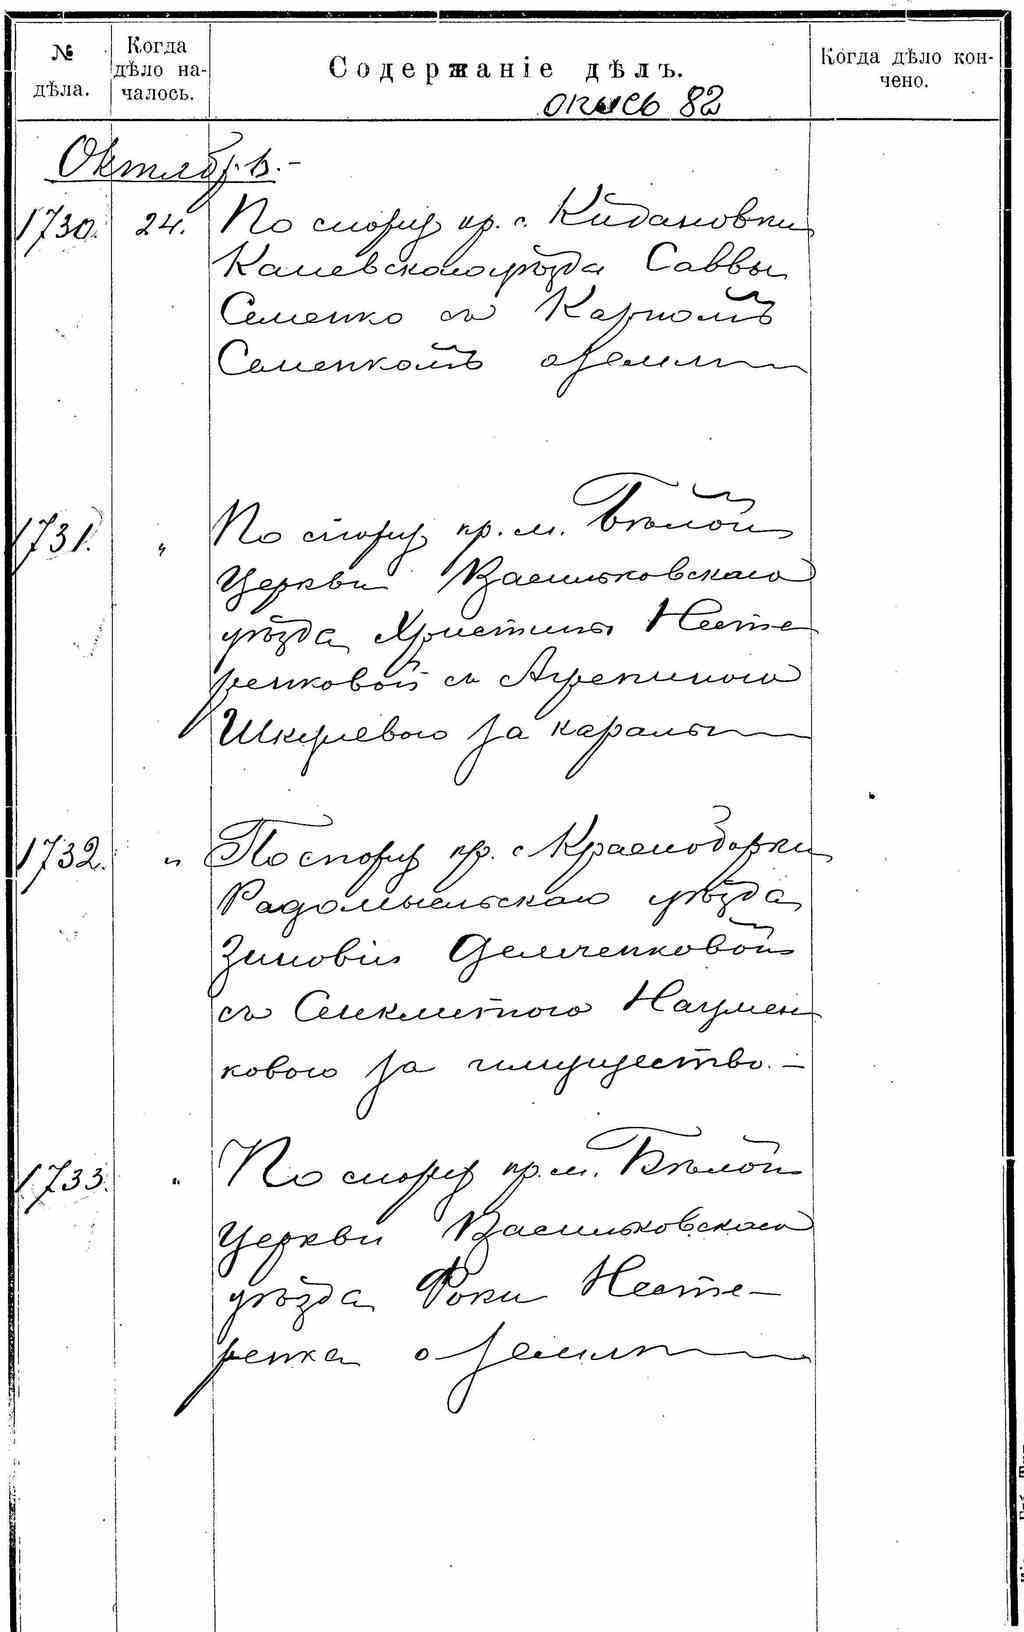 № дѣла.
Когда дѣло на-
чалось.
Содержаніе дѣлъ.
Когда дѣло кон-
чено.
опись 82
Октябрь.-
1730. 24. По спору кр. с. Кидановки
Каневскаго уѣзда Саввы
Семенко съ Карпомъ
Семенкомъ о земли
1731. " По спору кр. м. Бѣлой
Церкви Васильковскаго
уѣзда Христины Несте
ренковой съ Агрепиною
Шкулевою за каралы
1732. " По спору кр. с Красноборки
Радомысльскаго уѣзда
Зиновіи Демченковой
съ Синклитиною Наумен
ковою за имущество.-
1733. " По спору кр. м. Бѣлой
Церкви Васильковскаго
уѣзда Фоки Несте-
ренка о земли